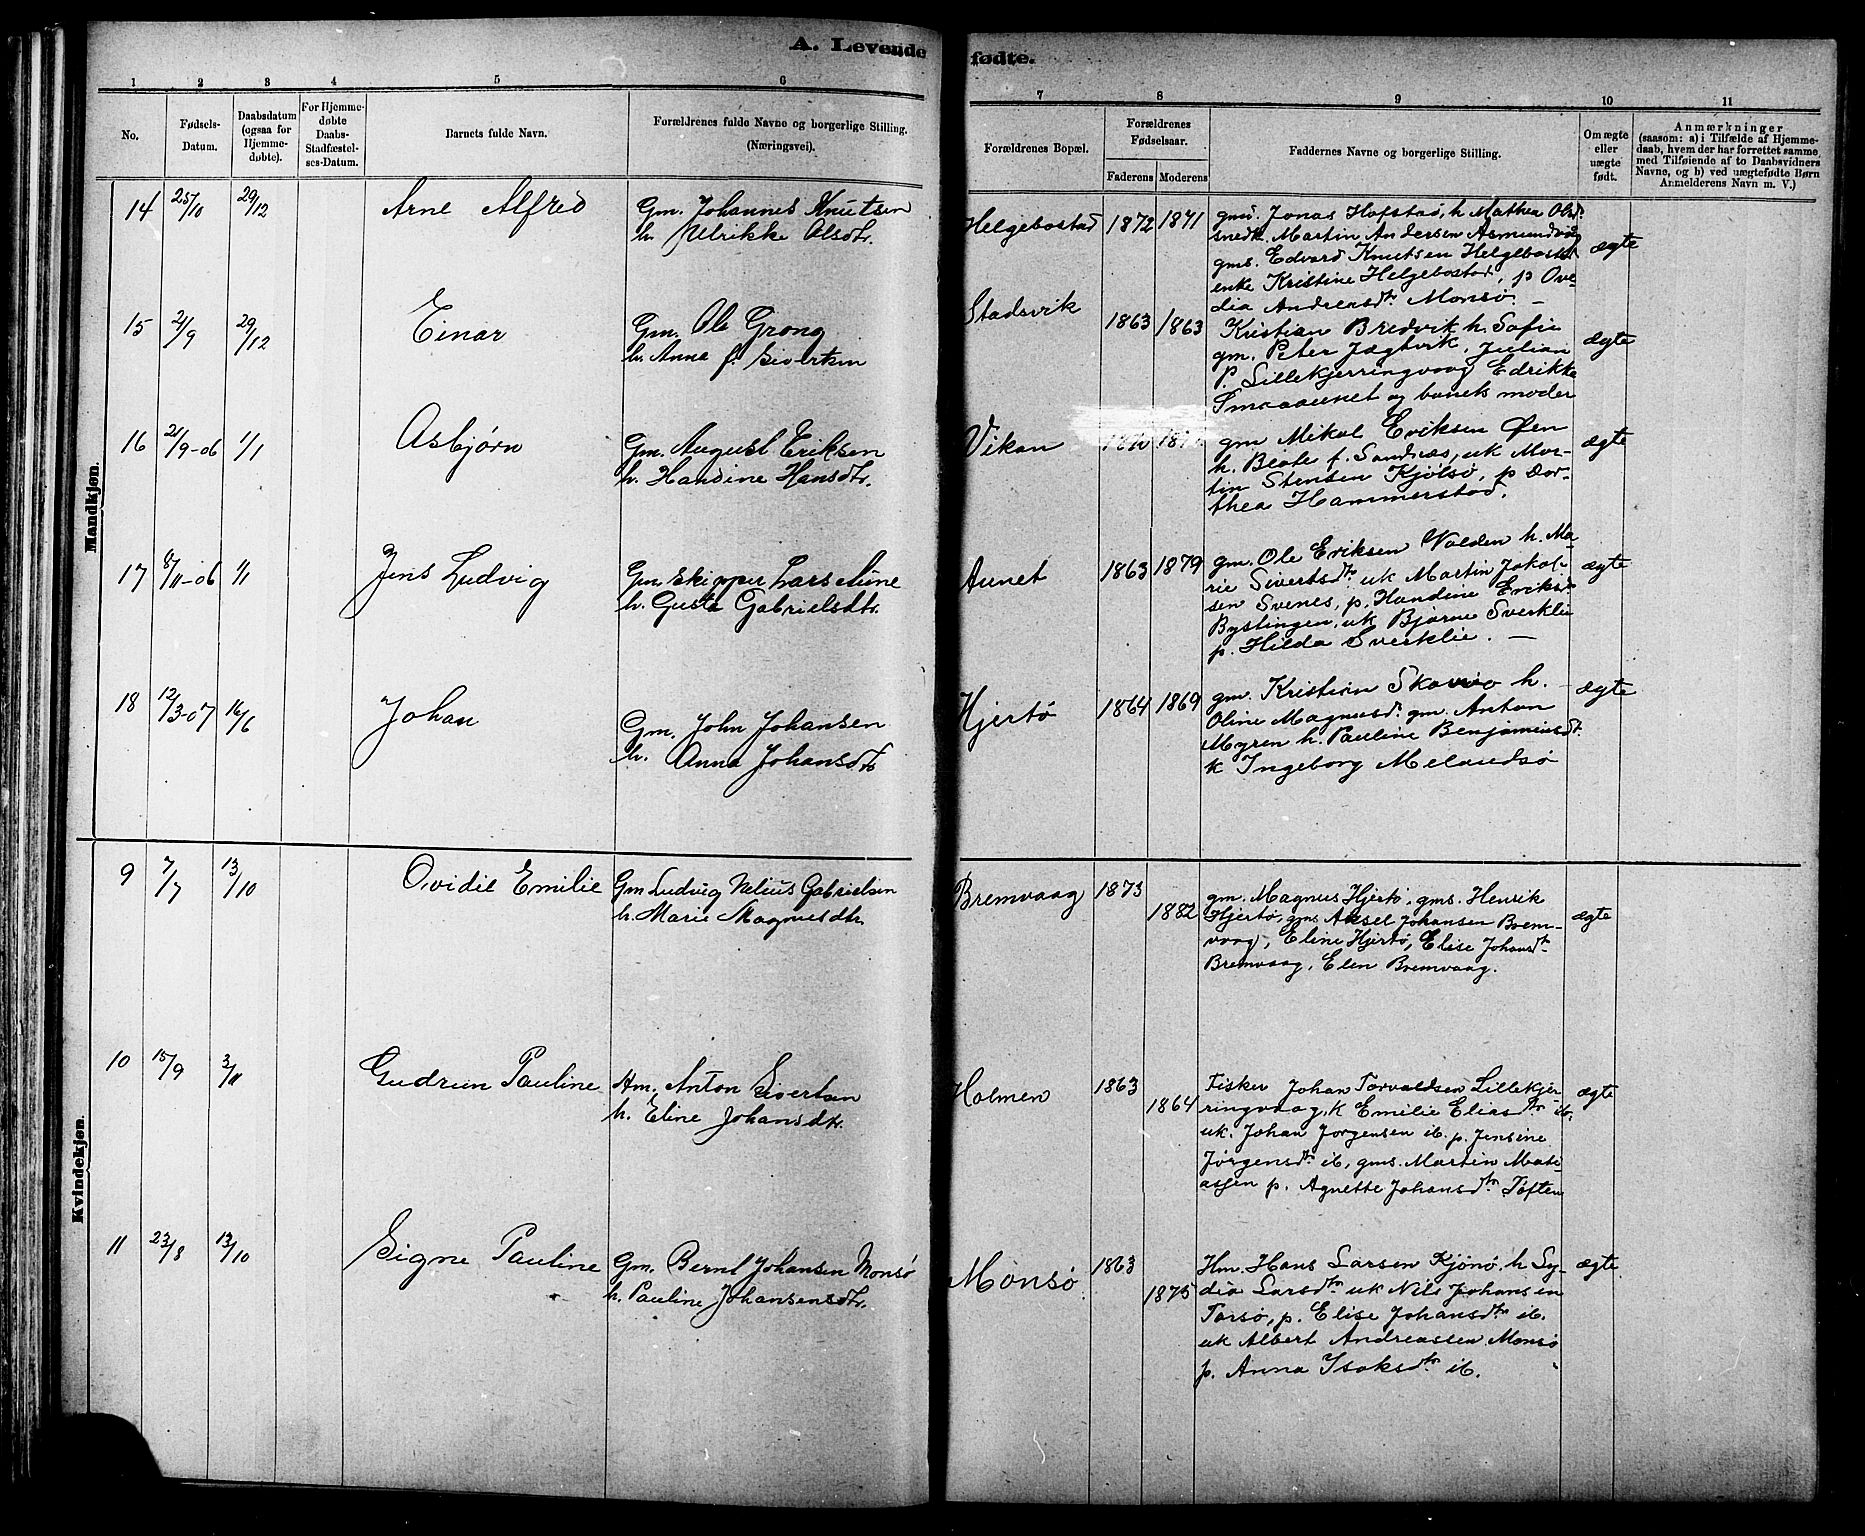 A. Levende fødte.
1 2 3 4 5 6 7 8 9 10 11
No.
Fødsels-
Datum.
Daabsdatum
(ogsaa for
Hjemme-
døbte).
For Hjemme-
døbte
Daabs-
Stadfæstel-
ses-Datum.
Barnets fulde Navn.
Forældrenes fulde Navne og borgerlige Stilling.
(Næringsvei).
Forældrenes Bopæl.
Forældrenes
Fødselsaar.
Faderens Moderens
Faddernes Navne og borgerlige Stilling.
Om ægte
eller
uægte
født.
Anmærkninger
(saasom: a) i Tilfælde af Hjemme-
daab, hvem der har forrettet samme,
med Tilføiende af to Daabsvidners
Navne, og b) ved uægtefødte Børn
Anmelderens Navn m. V.)
Mandkjøn.
14 25/10 29/12 Arne Alfred
Gm. Johannes Knutsen
h. Ulrikke Olsdtr.
Helgebostad 1872 1871
gms. Jonas Hofstad, h. Mathea Olsd.
snedk. Martin Andersen Asmundvåg
gms. Edvard Knutsen Helgebostad
enke Kristine Helgebostad, p Ove-
dia Andreasdtr Monsø. —
ægte
15 21/9 29/12 Einar
Gm. Ole Grong
h. Anna f. Sivertsen
Stadsvik 1863 1863
Kristian Bredvik h. Sofie
gm. Peter Jægtvik, Julian
P. Lillekjerringvaag Edrikke
Smaaunet og barnets moder
ægte
16 21/9-06 1/1 Asbjørn
Gm. August Eriksen
h. Handine Hansdtr.
Vikan
gm Mikal Eriksen Øen
h. Beate f. Sandnæs, uk Mor-
tin Stensen Kjölsö, p Dor-
thea Hammerstad.
ægte
17 8/11-06 1/1 Jens Ludvig
Gm Skipper Lars Aune
h. Gusta Gabrielsdtr.
Aunet 1863 1879
gm. Ole Eriksen Valden h. Ma-
rie Sivertsdtr uk Martin Jakob-
sen Svenes, p. Handine Eriksd.
Bystingen, uk Bjarne Sverklie
p. Hilda Sverklie. —
ægte
18 12/3-07 16/6 Johan
Gm. John Johansen
h. Anna Johansdtr
Hjertö 1864 1869
gm. Kristian h.
Oline Magnusd. gm. Anton
Myren h. Pauline Benjaminsdt.
k Ingeborg Melandsö
ægte
Kvindekjøn.
9 7/7 13/10 Ovidie Emilie
Gm Ludvig Nelius Gabrielsen
h. Marie Magnusdtr.
Bremvaag 1873
1882
gm. Magnus Hjertö, gms. Henrik
Hjertö, gms Aksel Johansen Brem-
vaag, Eline Hjertö, Elise Johansdtr
Bremvaag, Elen Bremvaag.
ægte
10 15/9 3/11 Gudrun Pauline
Hm. Anton Sivertsen
h. Eline Johansdtr.
Holmen 1863
1864
Fisker Johan Torvaldsen Lillekjer-
ringvaag, k Emilie Eliasdtr ib.
uk. Johan Jorgensen ib. p. Jensine
Jörgensdtr ib, gms. Martin Mati-
assen p. Agnette Johansdtr Töften
ægte
11 23/8 13/10 Signe Pauline
Gm. Bernt Johansen Monsø
h. Pauline Johansensdtr.
Monsö. 1863
1875
Hm. Hans Larsen Kjönö. h Ly-
dia Larsdtr uk Nils Johansen
Torsö, p. Elise Johansdtr ib.
uk Albert Andreassen Monsö
p. Anna Isaksdtr ib.
ægte